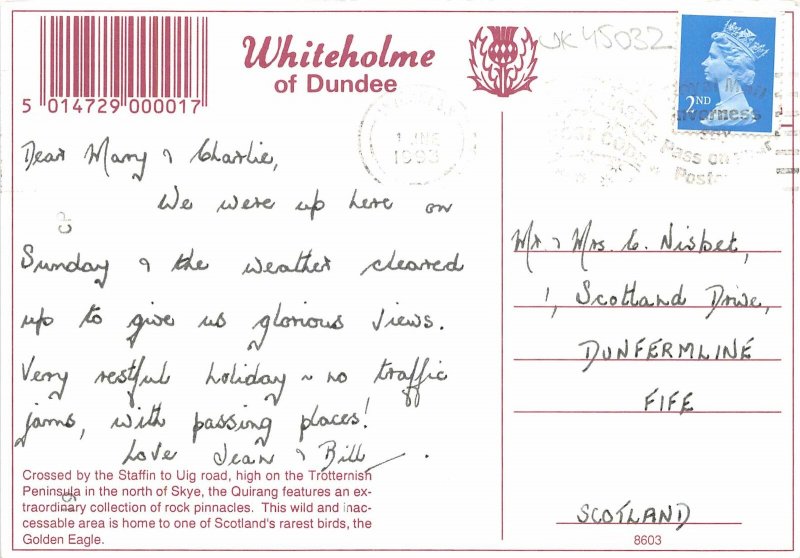 Whiteholme
of Dundee
UK45032
2ND
5 014729 000017
1993
Inverness
Pass on
Dear Mary & Charlie,
We were up here on
Sunday & the weather cleared
up to give us glorious views.
Very restful holiday ~ no traffic
jams, with passing places!
Love Jean & Bill
Crossed by the Staffin to Uig road, high on the Trotternish
Peninsula in the north of Skye, the Quirang features an ex-
traordinary collection of rock pinnacles. This wild and inac-
cessable area is home to one of Scotland's rarest birds, the
Golden Eagle.
Mr. & Mrs. C. Nisbet,
1, Scotland Drive,
DUNFERMLINE
FIFE
SCOTLAND
8603